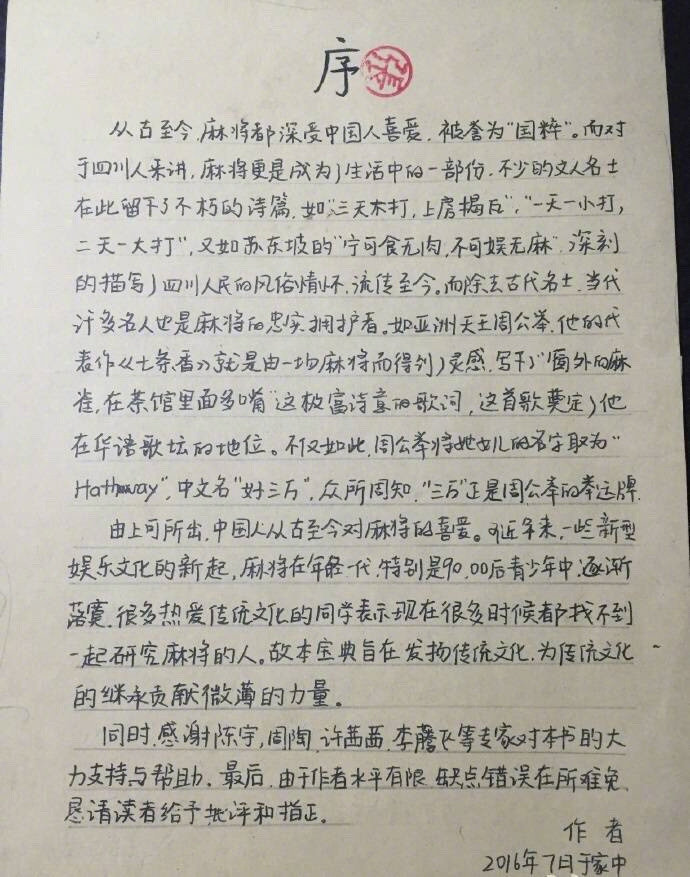 序
从古至今,麻将都深受中国人喜爱,被誉为"国粹"。而对
于四川人来讲,麻将更是成为了生活中的一部份,不少的文人名士
在此留下了不朽的诗篇,如"三天不打,上房揭瓦","一天一小打,
二天一大打",又如苏东坡的"宁可食无肉,不可娱无麻",深刻
的描写了四川人民的风俗情怀,流传至今。而除去古代名士,当代
许多名人也是麻将的忠实拥护者。如亚洲天王周公举,他的代
表作《七条香》就是由一场麻将而得到了灵感,写下了"窗外的麻
雀,在茶馆里面多嘴"这极富诗意的歌词,这首歌奠定了他
在华语歌坛的地位。不仅如此,周公举将她女儿的名字取为"
Hathaway",中文名"好三万",众所周知,"三万"正是周公举的幸运牌.
由上可所出,中国人从古至今对麻将的喜爱。近年来,一些新型
娱乐文化的新起,麻将在年轻一代,特别是90,00后青少年中,逐渐
落寞,很多热爱传统文化的同学表示现在很多时候都找不到
一起研究麻将的人。故本宝典旨在发扬传统文化,为传统文化
的继承贡献微薄的力量。
同时,感谢陈宇,周陶,许茜茜,李腾飞等专家对本书的大
力支持与帮助。最后,由于作者水平有限,缺点错误在所难免,
恳请读者给予批评和指正。
作者
2016年7日于家中